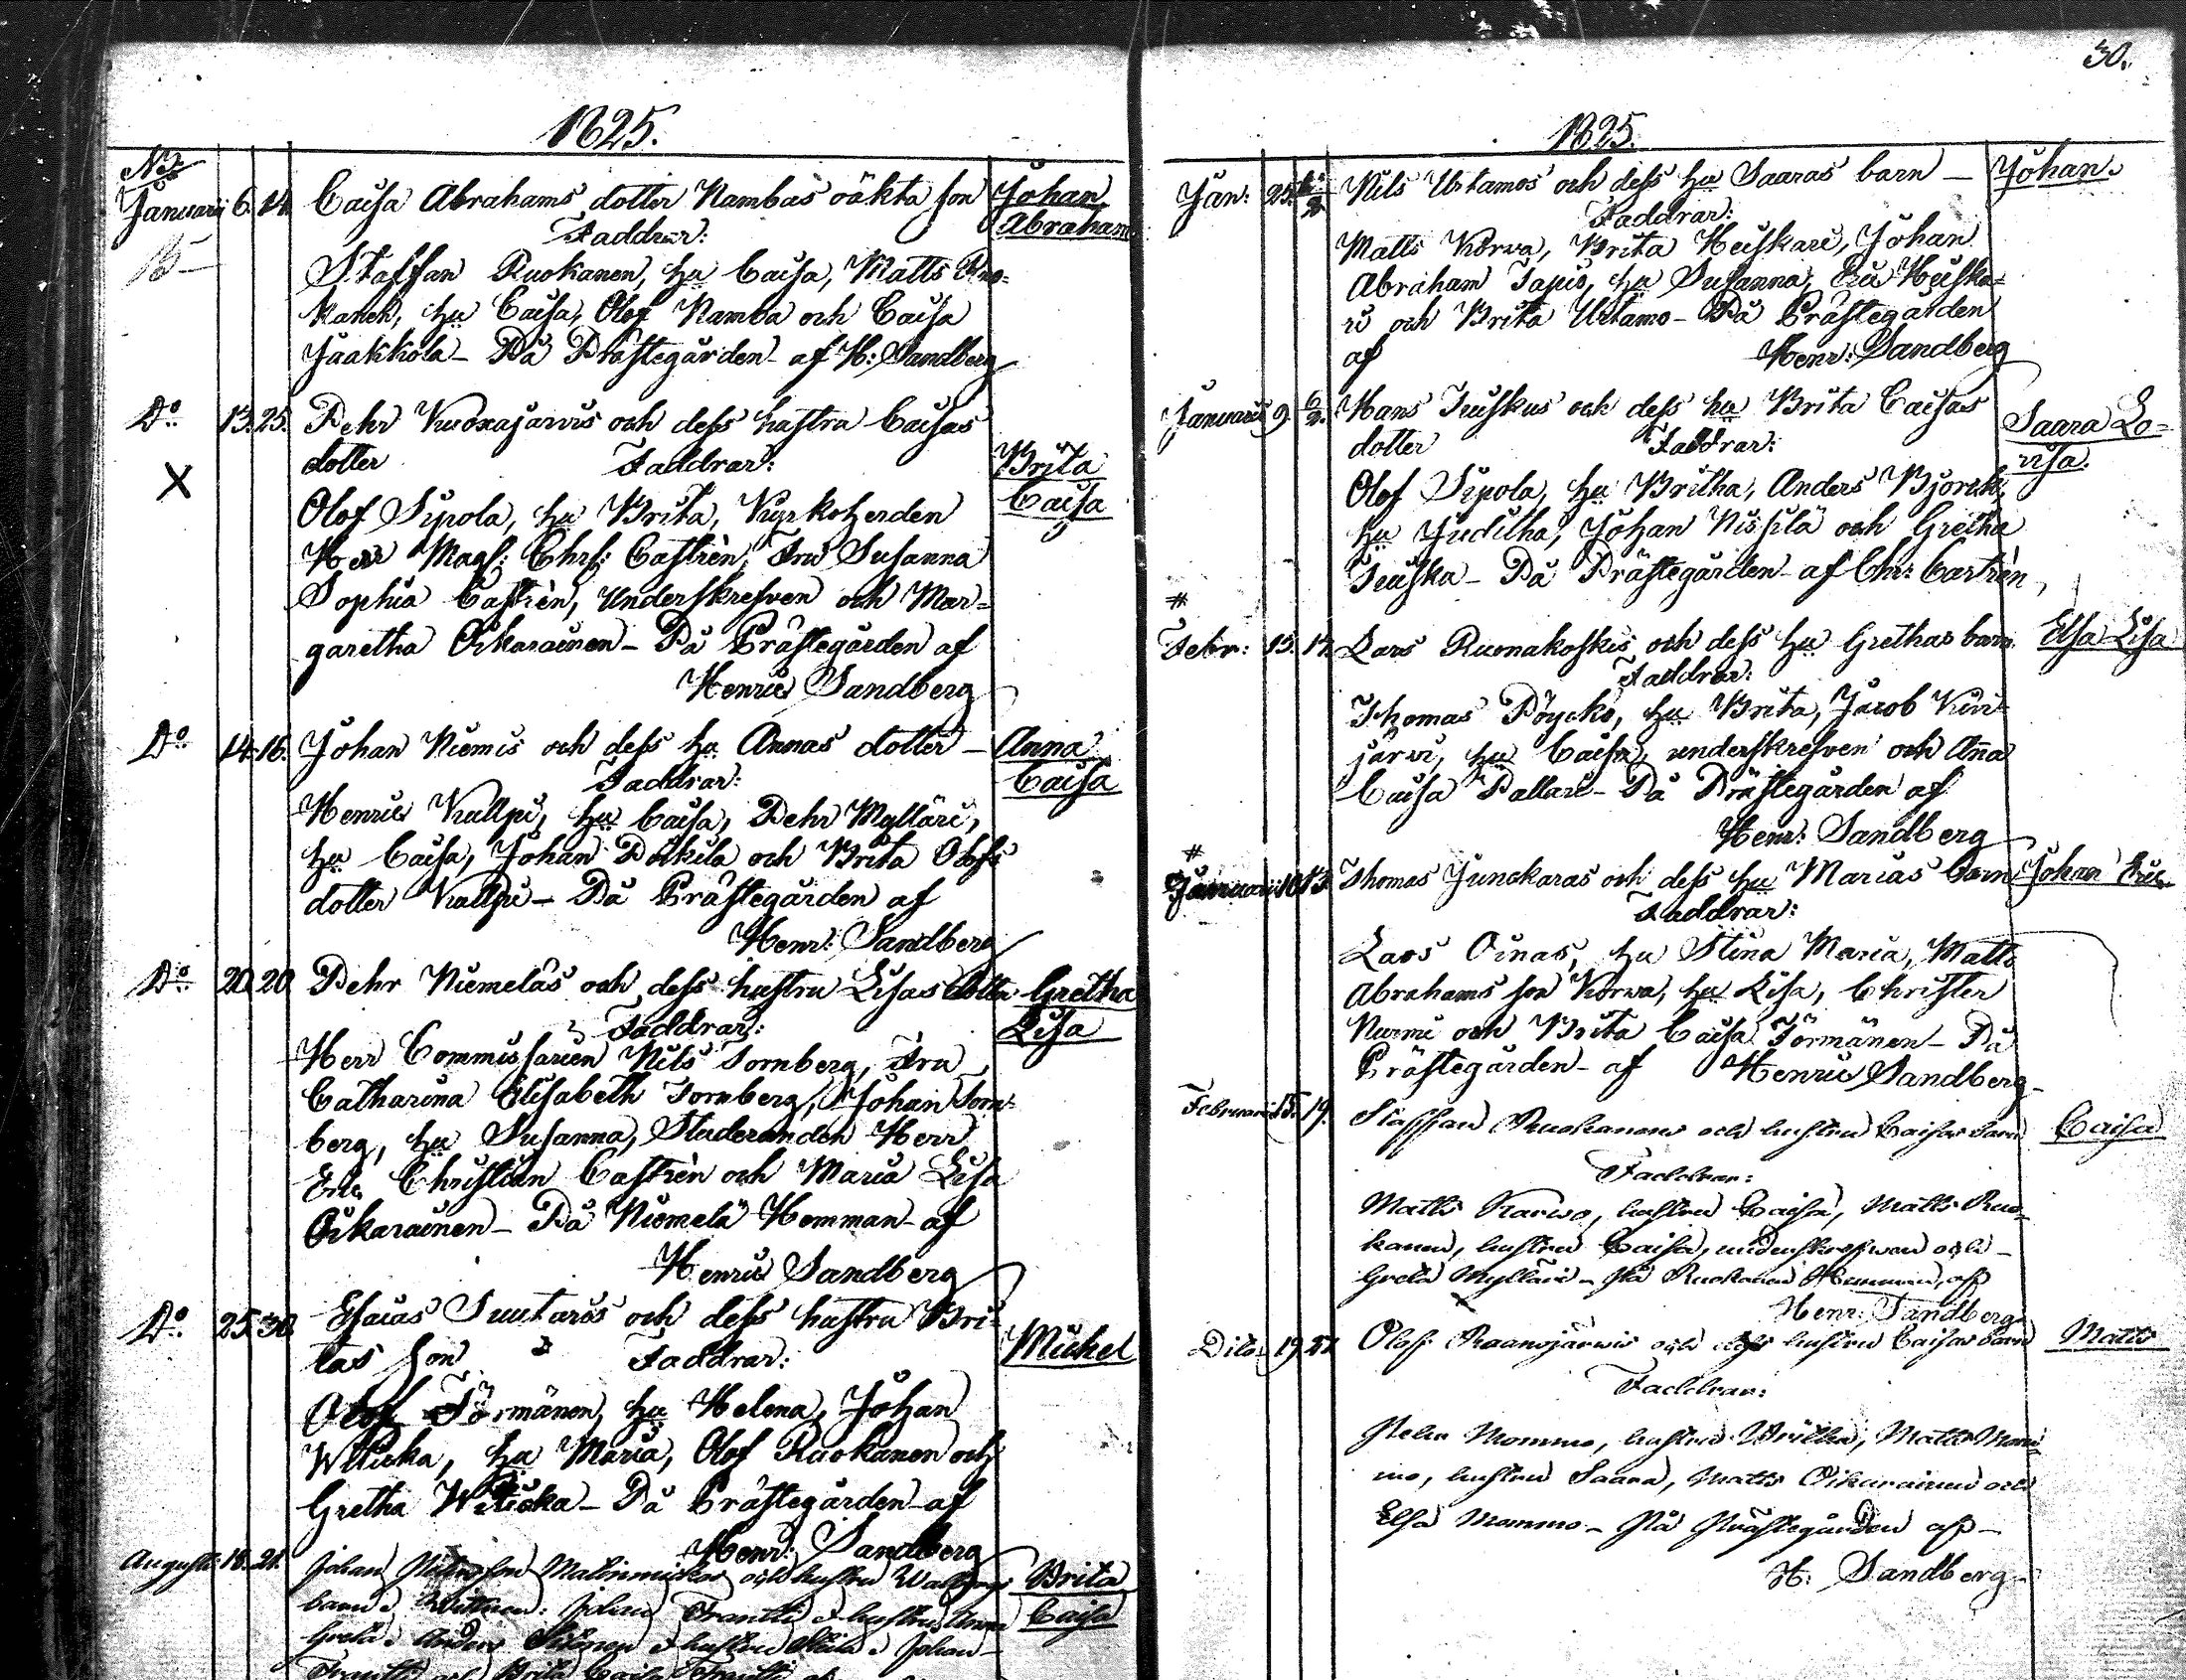 1825.
No
Januarii 6. 14. Caisa Abrahams dotter Kambas oäkta son Johan
Abraham
Faddrar:
Staffan Ruokanen, hu Caisa, Matts Ruo-
kanen, hu Caisa, Olof Kamba och Caisa
Jaakkola - På Prästegården - af H: Sandberg
Do 13. 25. Pehr Kuoxajärvis och dess hustru Caisas
dotter Faddrar: Brita
Caisa
X
Olof Sipola, hu Brita, Kyrkoherden
Herr Mag: Chr: Castrèn, Fru Susanna
Sophia Castrèn, Underskrefven och Mar-
garetha Oikarainen - På Prästegården af
Henric Sandberg
Do 14. 16. Johan Niemis och dess hu Annas dotter - Anna
Caisa
Faddrar:
Henric Kallpi, hu Caisa, Pehr Mylläri,
hu Caisa, Johan Poikila och Brita Olofs
dotter Kallpi - På Prästegården af
Henr: Sandberg
Do 20. 20. Pehr Niemeläs och dess hustru Lisas dotter Gretha
Lisa
Faddrar:
Herr Commissarien Nils Tornberg, Fru
Catharina Elisabeth Tornberg, Johan Torn-
berg, hu Susanna, Studeranden Herr
Eric Christian Castrèn och Maria Lisa
Oikarainen - På Niemelä Hemman - af
Henric Sandberg
Do 25. 30. Esaias Suutaris och dess hustru Bri-
tas son Faddrar: Mickel
Olof Törmänen, hu Helena, Johan
Witicka, hu Maria, Olof Ruokanen och
Gretha Witicka - På Prästegården af
Henr: Sandberg
Augusti 18. 21. Johan son och hustru Brita
barn Johan Frantti hustru Anna Caisa
Greta Anders hustru Johan
Frantti och Brita Caisa Frantti
30.
1825.
Jan: 25. Nils Urtamos och dess hu Saaras barn - Johan.
Faddrar:
Matts Korva, Brita Heiskari, Johan
Abraham Tapio, hu Susanna, Eric Heiska-
ri och Brita Urtamo - På Prästegården
af Henr: Sandberg
Januarii 9. 6/2. Hans Teuskus och dess hu Brita Caisas
dotter Faddrar: Saara Lo-
visa.
Olof Sipola, hu Britha, Anders Björck,
hu Juditha, Johan Nissilä och Gretha
Teuska - På Prästegården - af Chr: Castrèn,
#
Febr: 13. 14. Lars Ruonakoskis och dess hu Grethas barn Elsa Lisa
Faddrar:
Thomas Pöyckö, hu Brita, Jacob Kivi-
järvi, hu Caisa, underskrefven och Anna
Caisa Pallari - På Prästegården af
Henr: Sandberg
#
Januarii 10. 13. Thomas Junckaras och dess hu Marias barn Johan Eric
Faddrar:
Lars Oinas, hu Stina Maria, Matts
Abrahams son Korwa, hu Lisa, Christer
Nurmi och Brita Caisa Törmänen - På
Prästegården - af Henric Sandberg -
Februarii 15. 19. Staffan Ruokanens och hustru Caisas barn Caisa
Faddrar:
Matts Karwo, hustru Caisa, Matts Ruo-
kanen, hustru Caisa, underskrefwen och -
Greta Mylläri - På Ruokanen Hemman, af
Henr: Sandberg
Dito 19. 27. Olof Raanojärwis och dess hustru Caisas barn Matts
Faddrar:
Pehr Mommo, hustru Britha, Matts Mom-
mo, hustru Saara, Matts Oikarainen och
Elsa Mommo - På Prästegården af -
H: Sandberg -